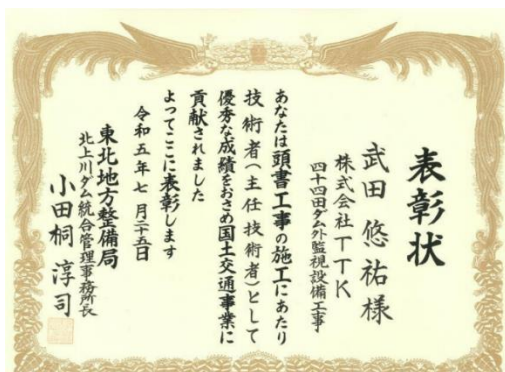 表彰状
武田悠祐様
株式会社TTK
四十四田ダム外監視設備工事
あなたは頭書工事の施工にあたり
技術者(主任技術者)として
優秀な成績をおさめ国土交通事業に
貢献されました
よってここに表彰します
令和五年七月二十五日
東北地方整備局
北上川ダム統合管理事務所長
小田桐淳司